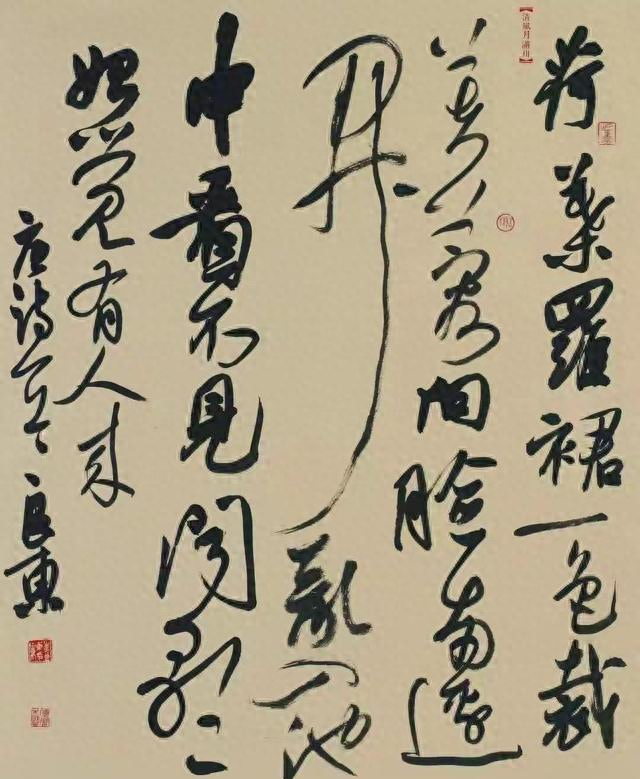 荷葉羅裙一色裁
芙蓉向臉兩邊
開亂入池
中看不見聞歌
始覺有人來
唐詩一首 良東